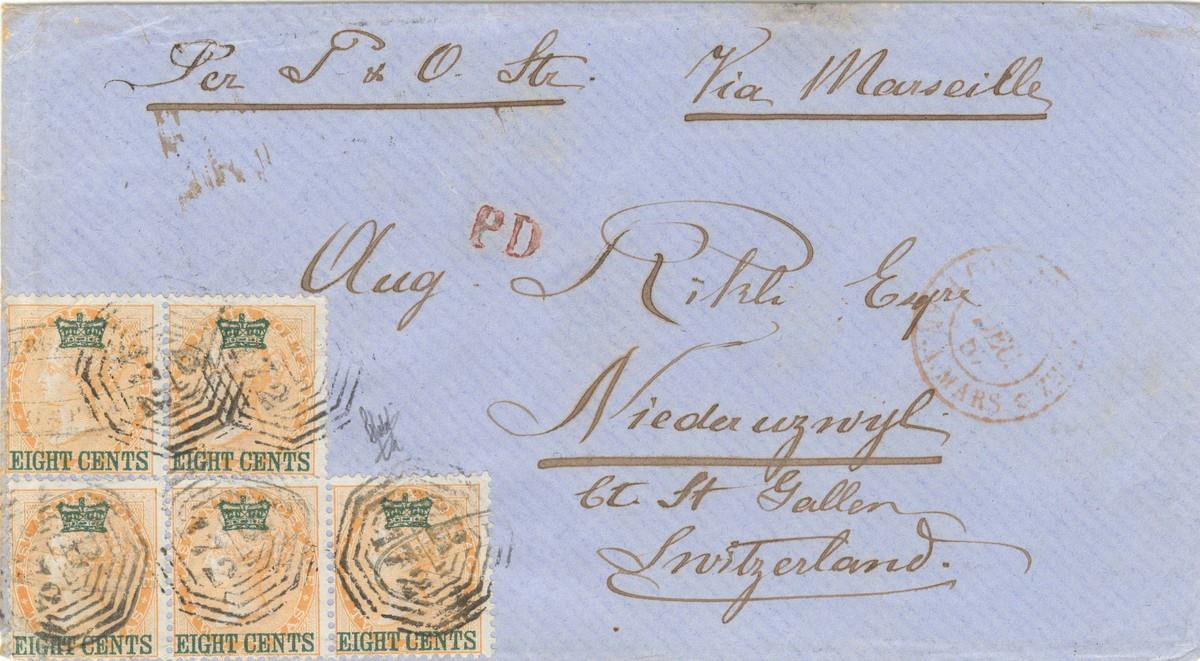 Per P & O. Str. Via Marseille
PD
Aug. Rikli Esqre
Niederuzwyl.
Ct. St Gallen
Switzerland.
EIGHT CENTS EIGHT CENTS
EIGHT CENTS EIGHT CENTS EIGHT CENTS